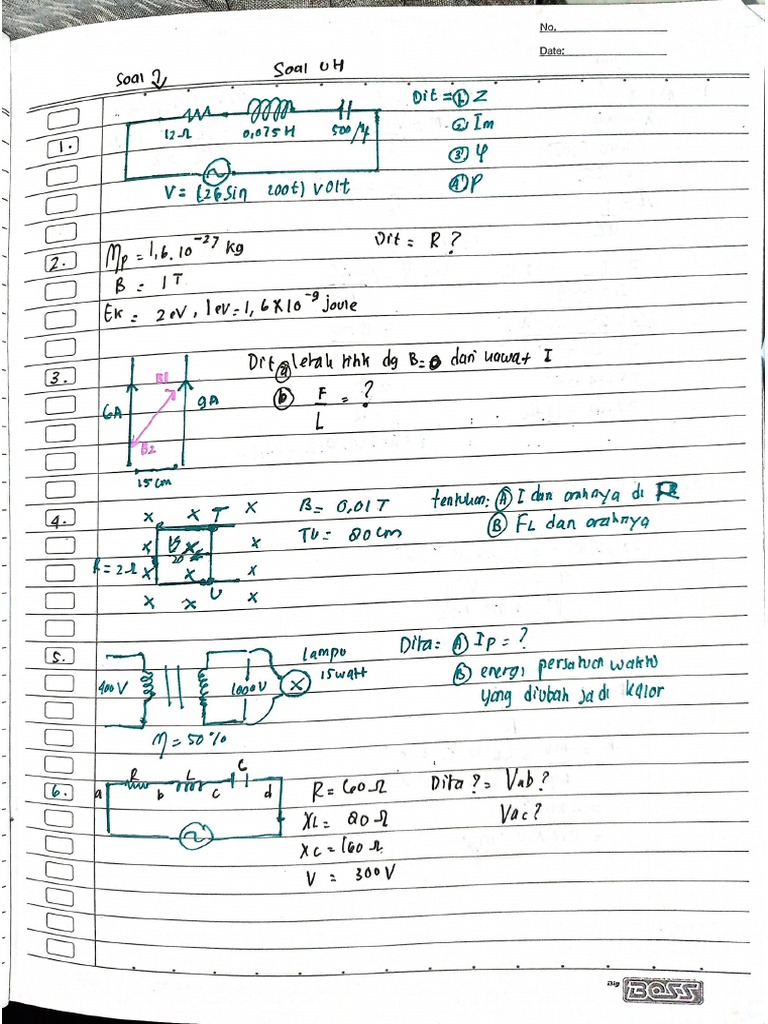 No.
Date:
Soal 2
Soal UH
1.
12Ω 0,075H 500
V = (26 sin 200t) volt
Dit = ① Z
② Im
③ φ
④ P
2. Mp = 1,6.10⁻²⁷ kg
Dit = R ?
B = 1 T
Ek = 2 eV, 1 eV = 1,6 X 10⁻⁹ joule
3.
6A 9A
B1
B2
15 cm
Dit ⓐ letak titik dg B=0 dari kawat I
ⓑ F/L = ?
4.
x x T x
x x x
x x x
x x U x
R = 2Ω
B = 0,01 T
TU = 80 cm
tentukan: Ⓐ I dan arahnya di R
Ⓑ FL dan arahnya
5.
400 V 1000 V
lampu
15 watt
η = 50%
Dita: Ⓐ Ip = ?
Ⓑ energi persatuan waktu
yang diubah jadi kalor
6.
R L C
a b c d
R = 60 Ω
XL = 80 Ω
XC = 160 Ω
V = 300 V
Dita ? = Vab ?
Vac ?
Big BOSS